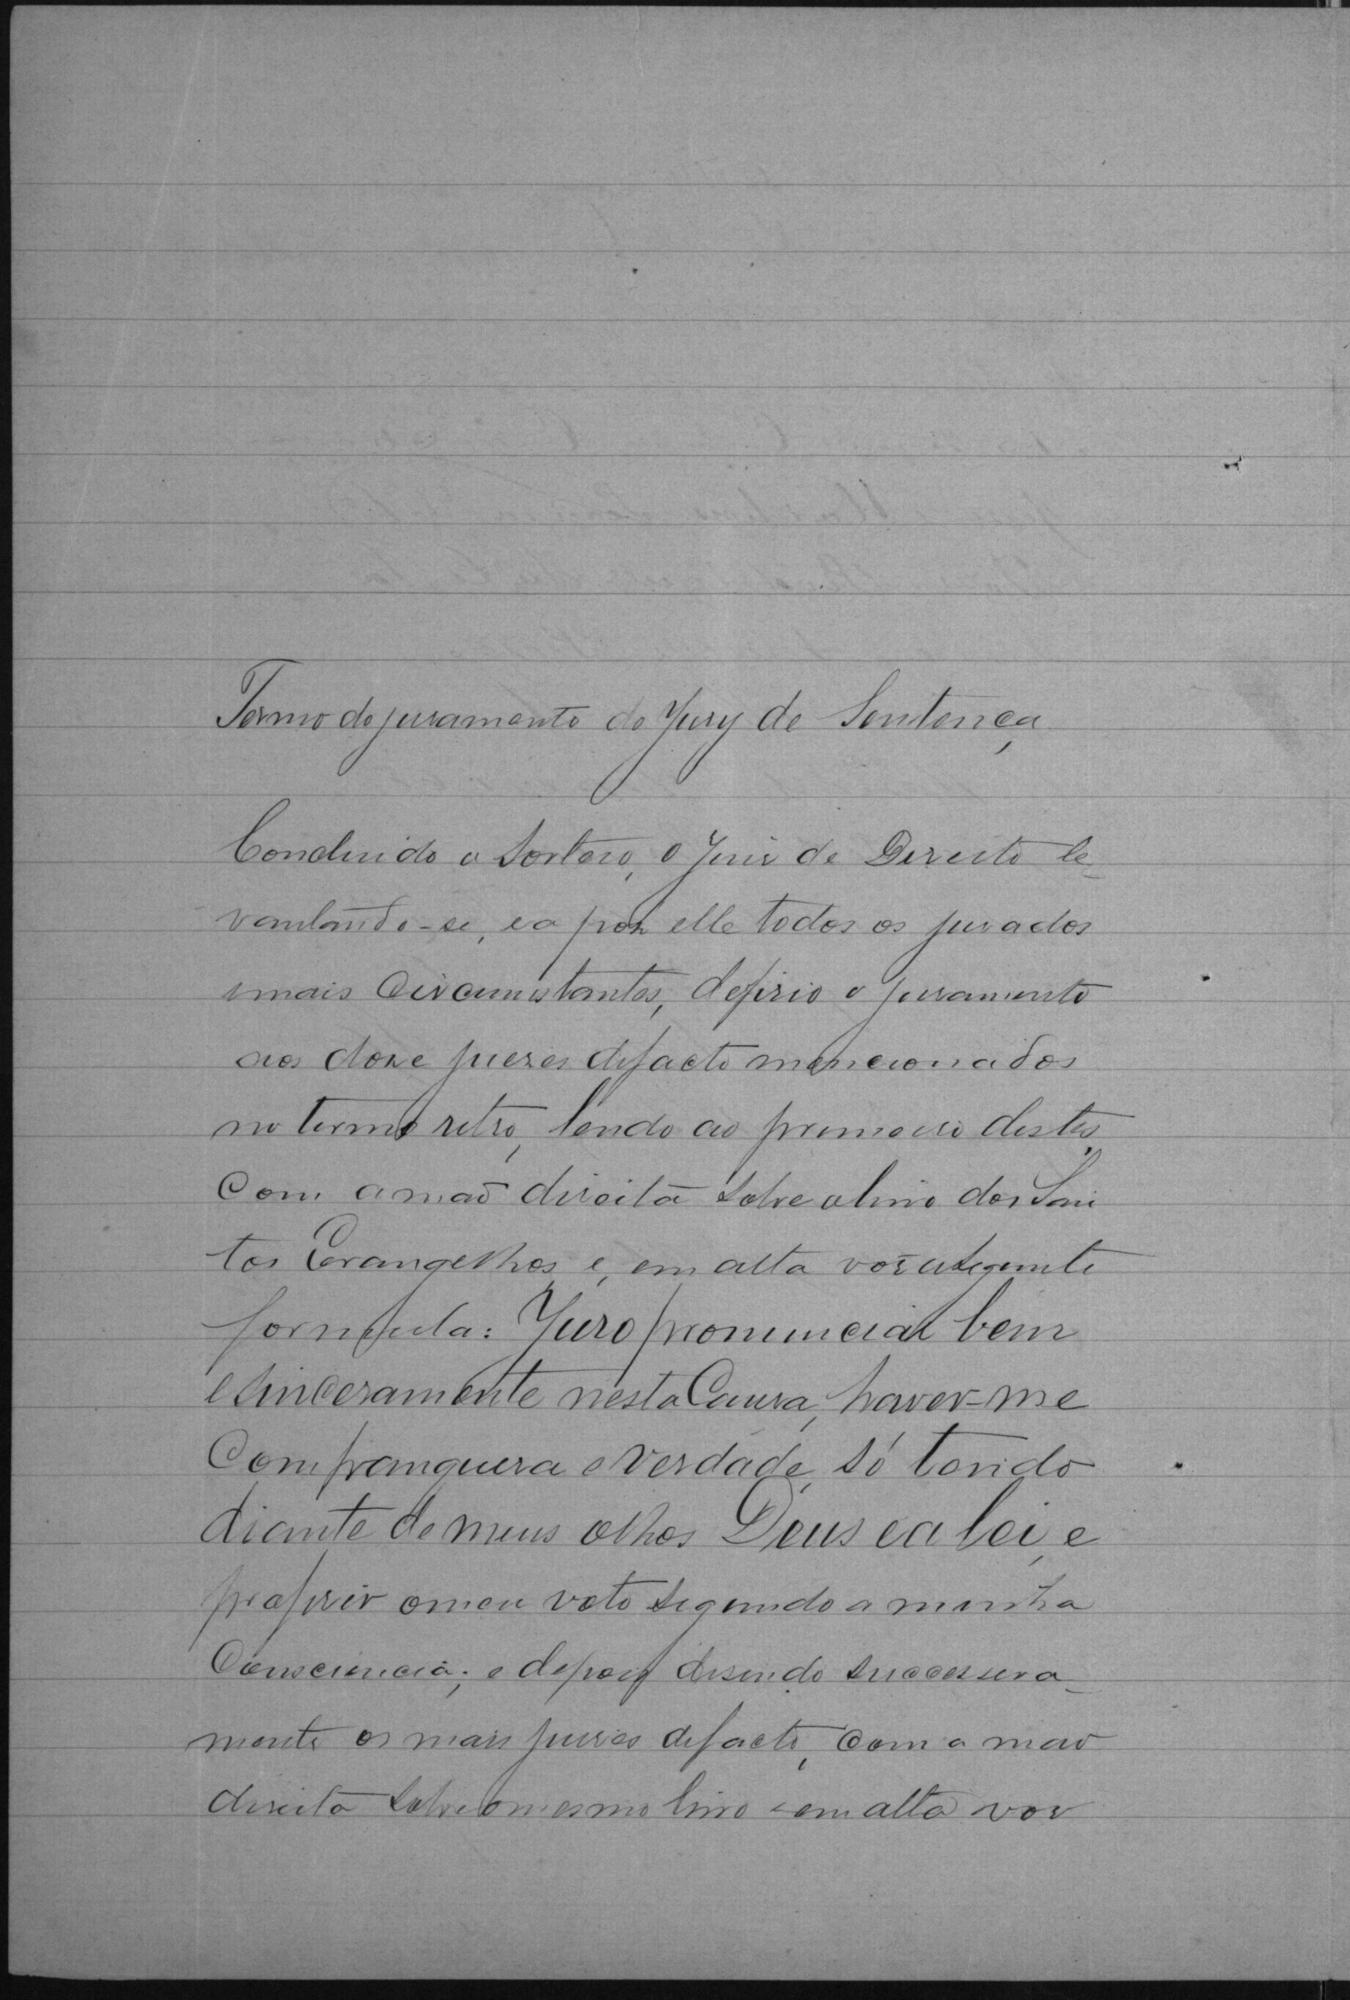 Termo de juramento do Jury de Sentença
Concluido o sorteio, o Juiz de Direito le-
vantando-se, e a por elle todos os jurados
e mais circumstantes, deferio o juramento
aos doze juizes de facto mencionados
no termo retro, lendo ao primeiro destes,
com a mão direita sobre o livro dos San
tos Evangelhos, e, em alta voz a seguinte
formula: Juro pronunciar bem
e sinceramente nesta Causa, haver-me
com franqueza e verdade, só tendo
diante de meus olhos Deus e a lei, e
proferir o meu voto segundo a minha
consciencia; e depois disendo successiva-
mente os mais juizes de facto, com a mão
direita sobre o mesmo livro e em alta voz